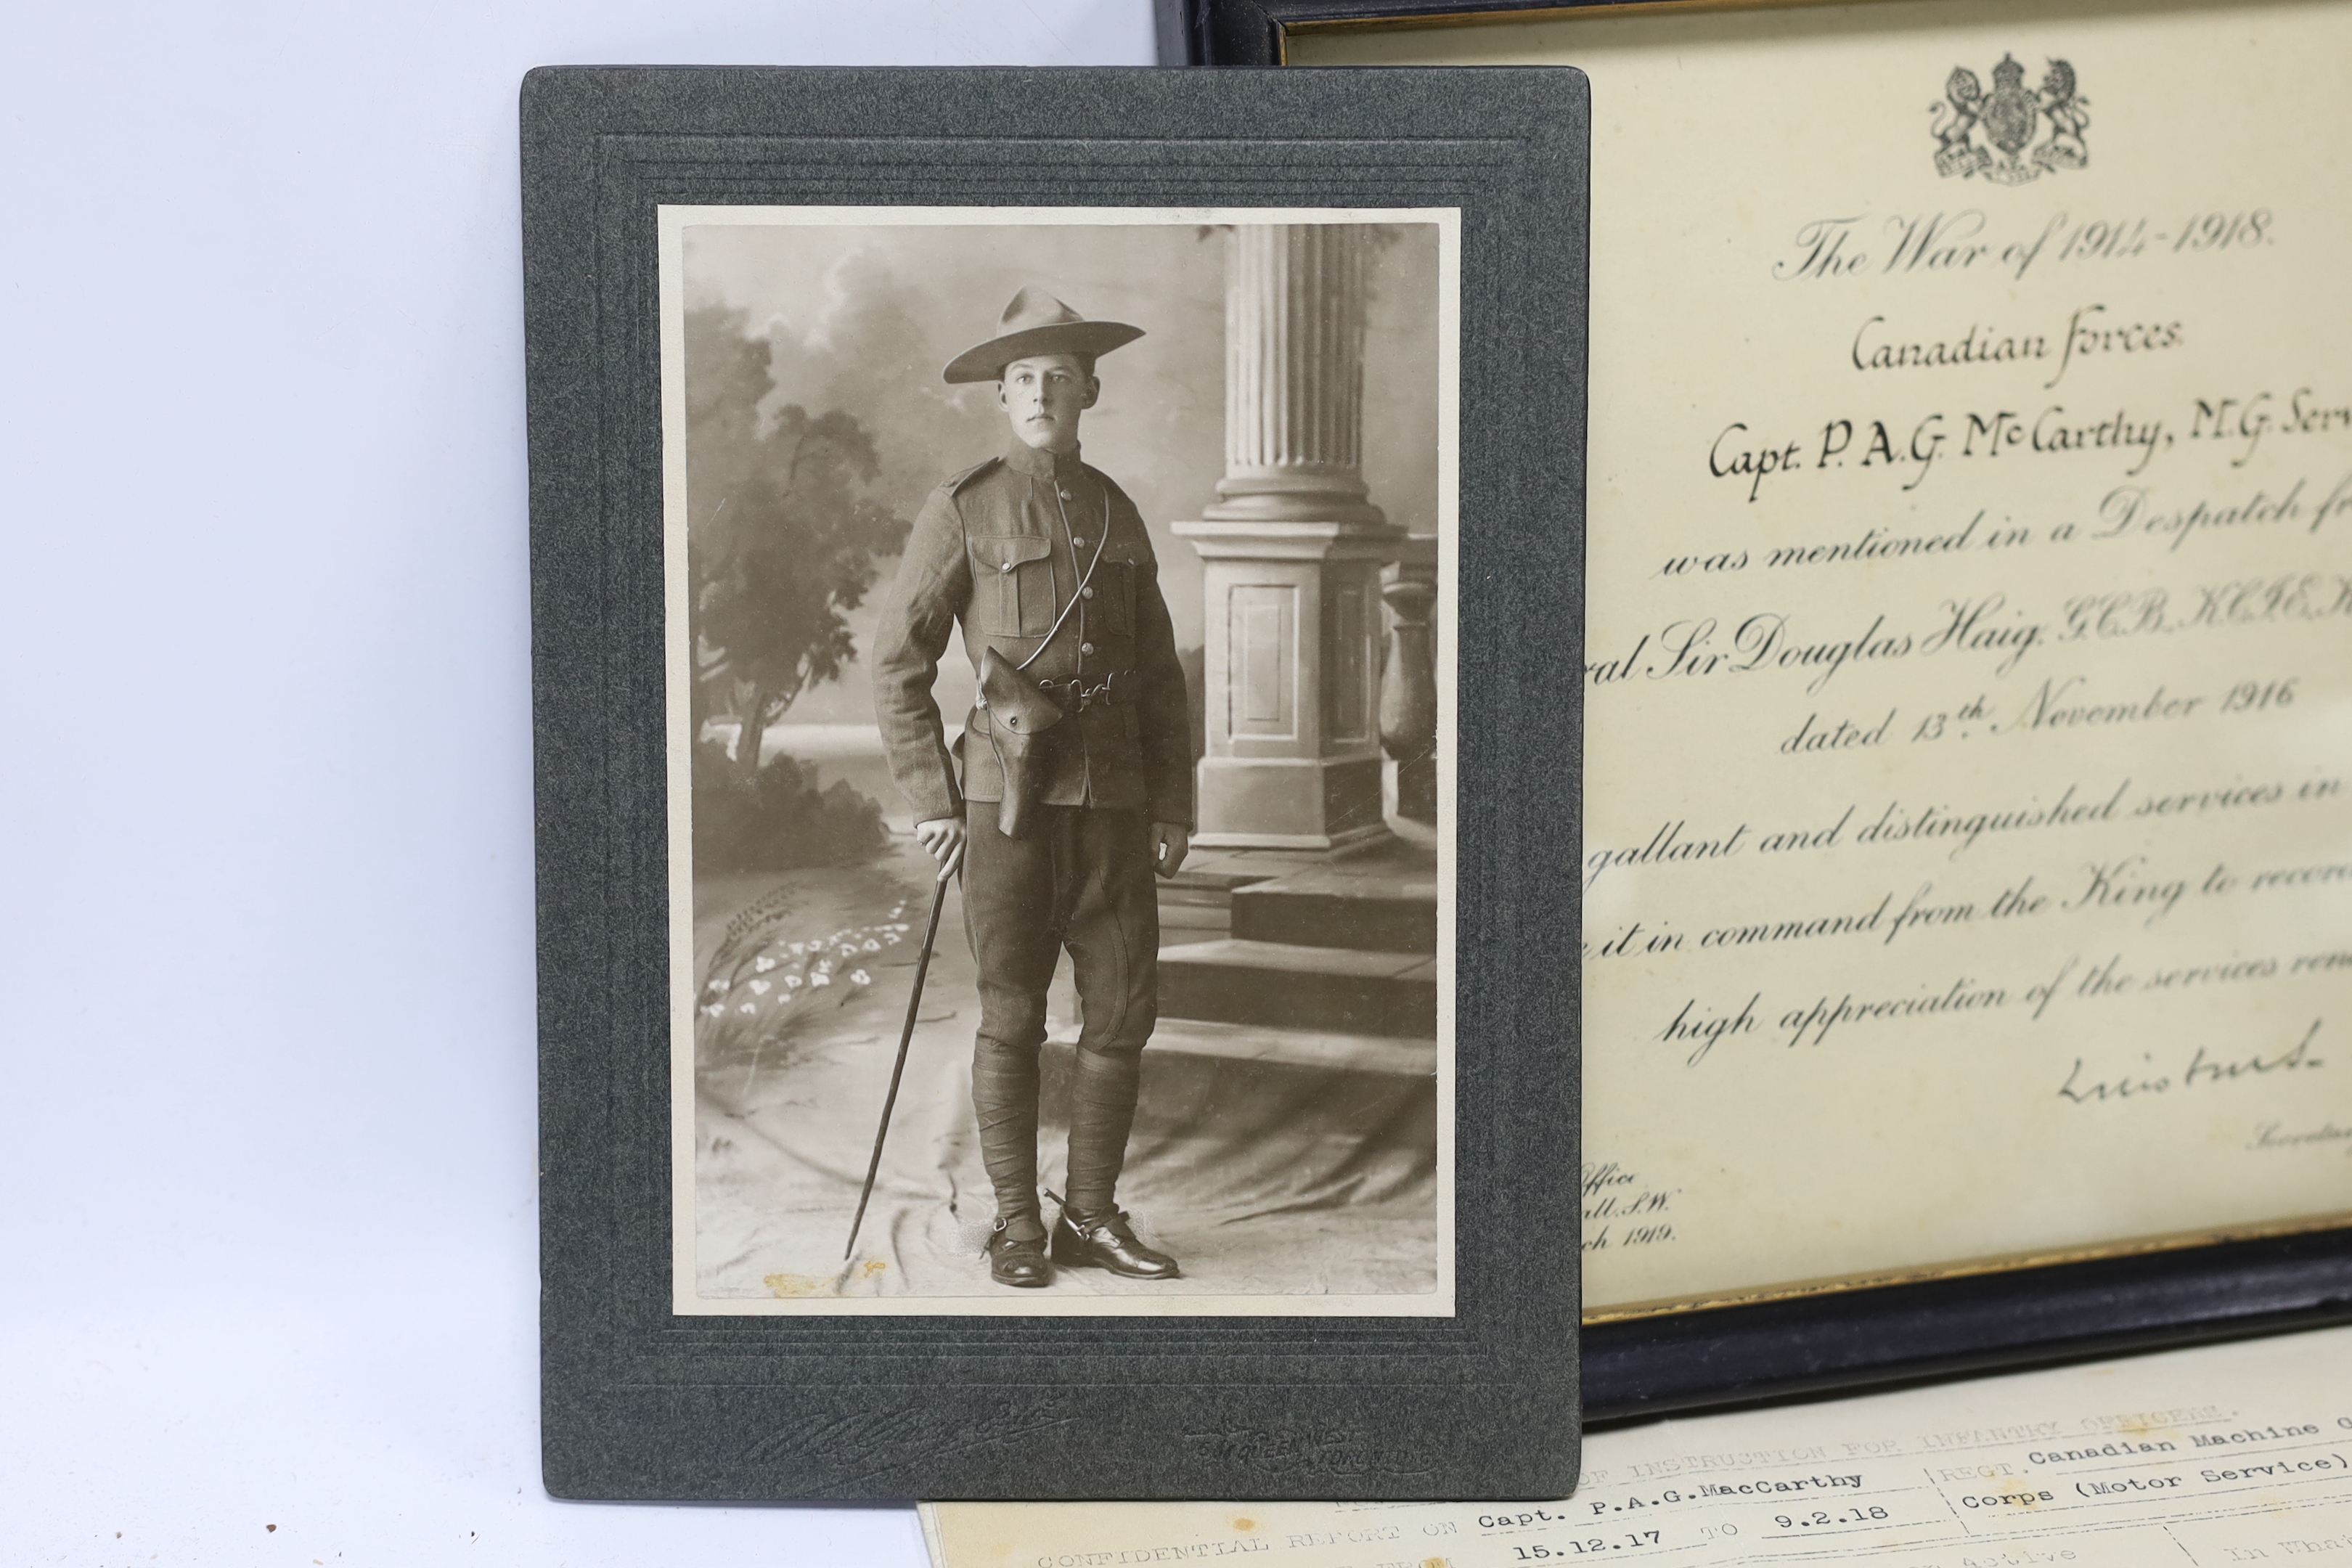 The War of 1914-1918.
Canadian Forces.
Capt. P. A. G. McCarthy, M. G. Serv
was mentioned in a Despatch
Sir Douglas Haig. G.C.B., K.C.I.E.,
dated 13th. November 1916
gallant and distinguished services in
it in command from the King to record
high appreciation of the services
Office
S.W.
1919.
QUEEN WEST
TORONTO
OF INSTRUCTION FOR INFANTRY OFFICERS.
CONFIDENTIAL REPORT ON Capt. P.A.G.MacCarthy REGT. Canadian Machine G
Corps (Motor Service)
FROM 15.12.17 TO 9.2.18
Active In What